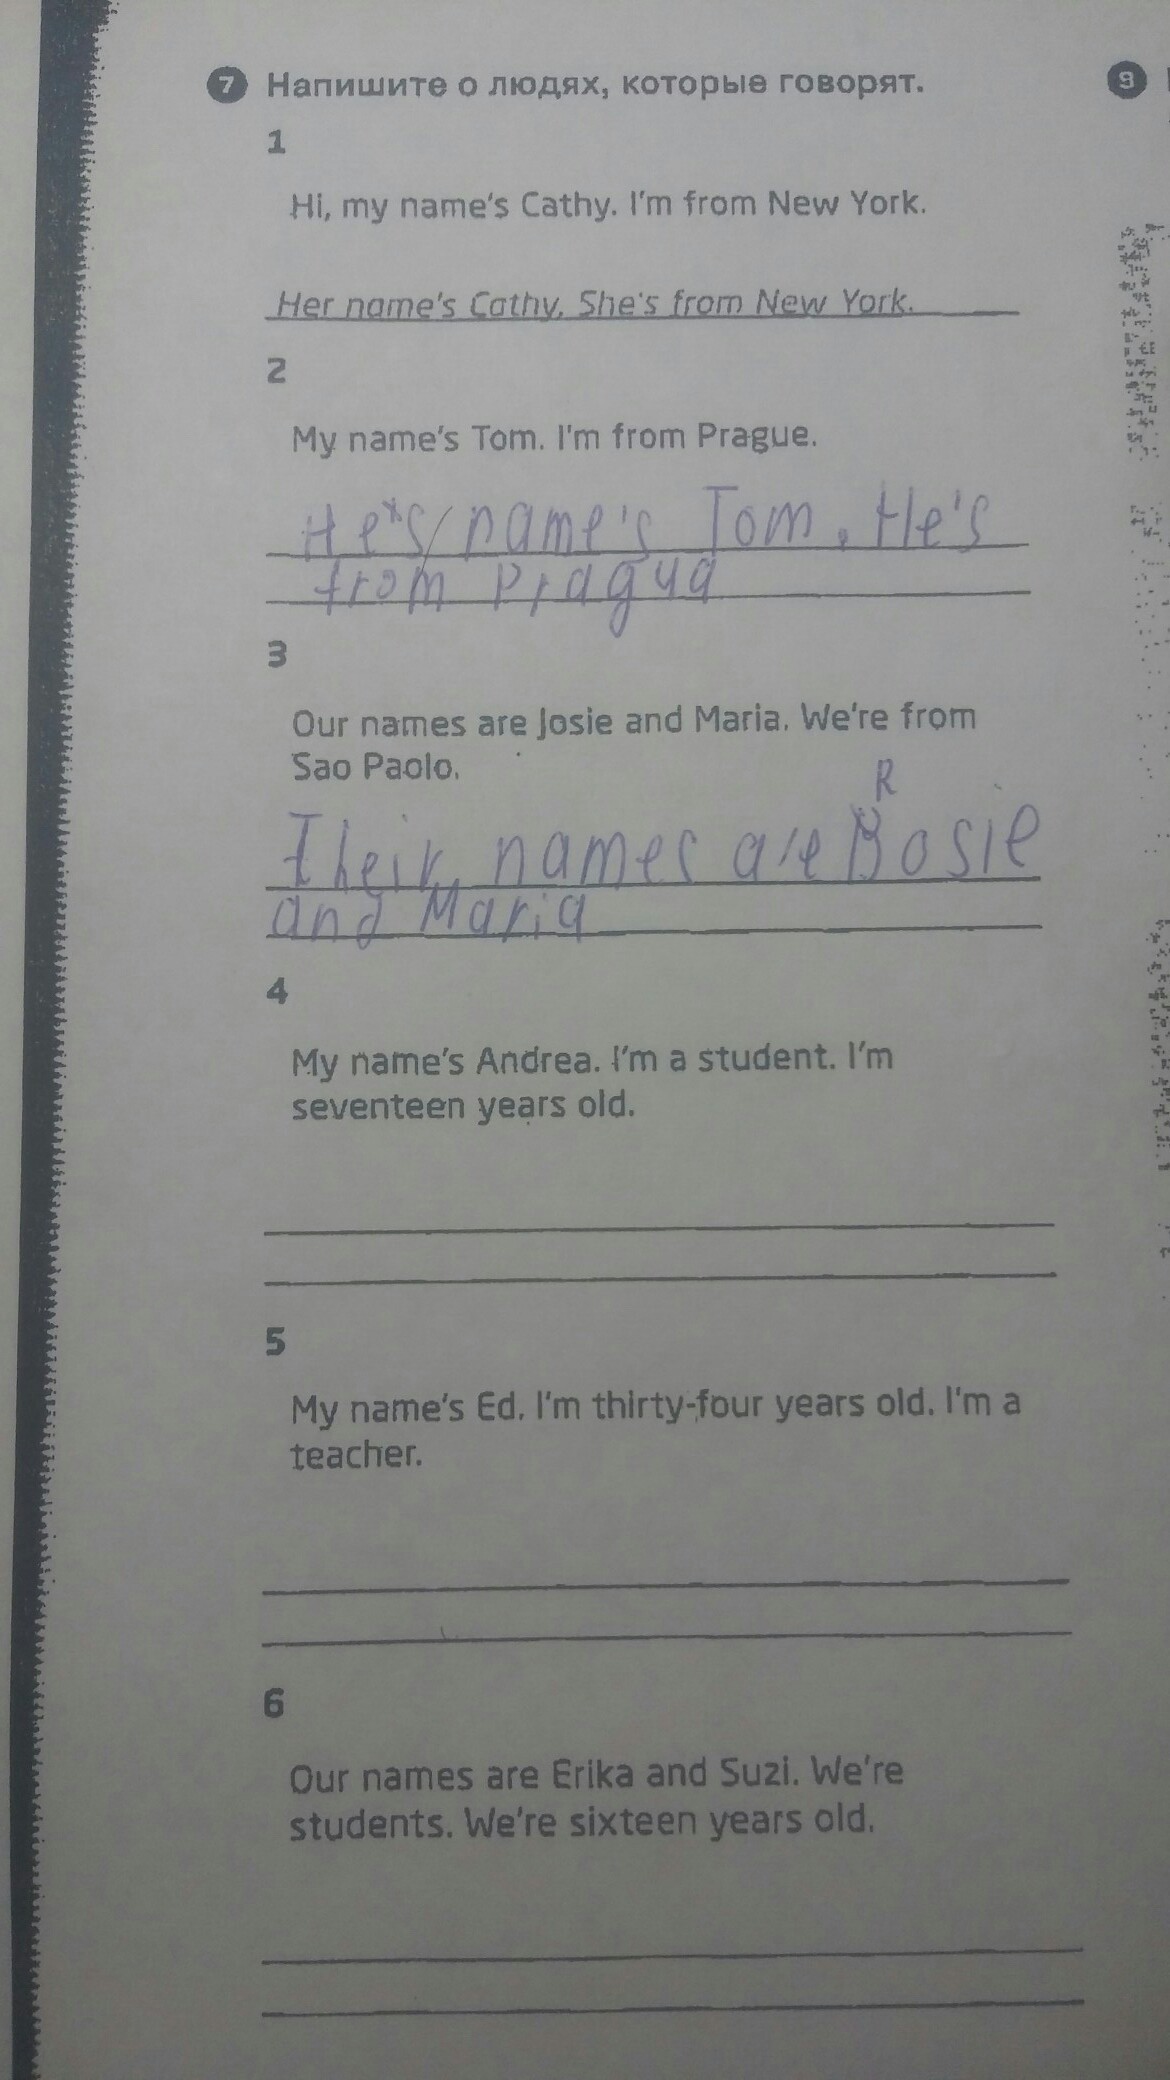 7 Напишите о людях, которые говорят.
9
1
Hi, my name's Cathy. I'm from New York.
Her name's Cathy. She's from New York.
2
My name's Tom. I'm from Prague.
He's name's Tom. He's
from Pragua
3
Our names are Josie and Maria. We're from
Sao Paolo.
R
Their names are Bosie
and Maria
4
My name's Andrea. I'm a student. I'm
seventeen years old.
5
My name's Ed. I'm thirty-four years old. I'm a
teacher.
6
Our names are Erika and Suzi. We're
students. We're sixteen years old.